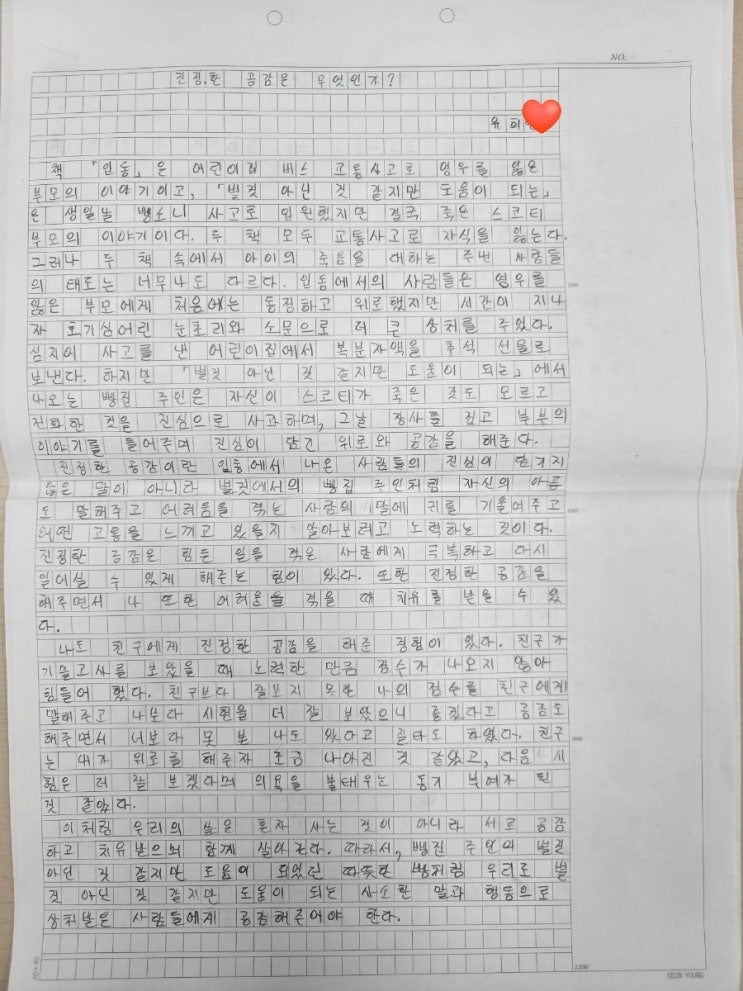 NO.
진정한 공감은 무엇인가?
유희
책 「입동」은 어린이집 버스 교통사고로 영우를 잃은
부모의 이야기이고, 「별것 아닌 것 같지만 도움이 되는」
은 생일날 뺑소니 사고로 입원했지만 결국 죽은 스코티
부모의 이야기이다. 두 책 모두 교통사고로 자식을 잃는다.
그러나 두 책 속에서 아이의 죽음을 대하는 주변 사람들
의 태도는 너무나도 다르다. 입동에서의 사람들은 영우를
잃은 부모에게 처음에는 동정하고 위로했지만 시간이 지나
자 호기심어린 눈초리와 소문으로 더 큰 상처를 주었다.
심지어 사고를 낸 어린이집에서 복분자액을 추석 선물로
보낸다. 하지만 「별것 아닌 것 같지만 도움이 되는」에서
나오는 빵집 주인은 자신이 스코티가 죽은 것도 모르고
전화한 것을 진심으로 사과하며, 그날 장사를 접고 부부의
이야기를 들어주며 진심이 담긴 위로와 공감을 해준다.
진정한 공감이란 입동에서 나온 사람들의 진심이 담기지
않은 말이 아니라 별것에서의 빵집 주인처럼 자신의 아픔
도 말해주고 어려움을 겪는 사람의 말에 귀를 기울여주고
어떤 고통을 느끼고 있을지 알아보려고 노력하는 것이다.
진정한 공감은 힘든 일을 겪은 사람에게 극복하고 다시
일어설 수 있게 해주는 힘이 있다. 또한 진정한 공감을
해주면서 나 또한 어려움을 겪을 때 치유를 받을 수 있
다.
나도 친구에게 진정한 공감을 해준 경험이 있다. 친구가
기말고사를 보았을 때 노력한 만큼 점수가 나오지 않아
힘들어 했다. 친구보다 잘보지 못한 나의 점수를 친구에게
말해주고 나보다 시험을 더 잘 보았으니 좋겠다고 공감도
해주면서 너보다 못 본 나도 있다고 한탄도 하였다. 친구
는 내가 위로를 해주자 조금 나아진 것 같았고, 다음 시
험은 더 잘 보겠다며 의욕을 불태우는 동기 부여가 된
것 같았다.
이처럼 우리의 삶은 혼자 사는 것이 아니라 서로 공감
하고 치유받으며 함께 살아간다. 따라서, 빵집 주인의 별것
아닌 것 같지만 도움이 되었던 따뜻한 빵처럼 우리도 별
것 아닌 것 같지만 도움이 되는 사소한 말과 행동으로
상처받은 사람들에게 공감해주어야 한다.
300
600
900
1200
20×40
KEUN YOUNG